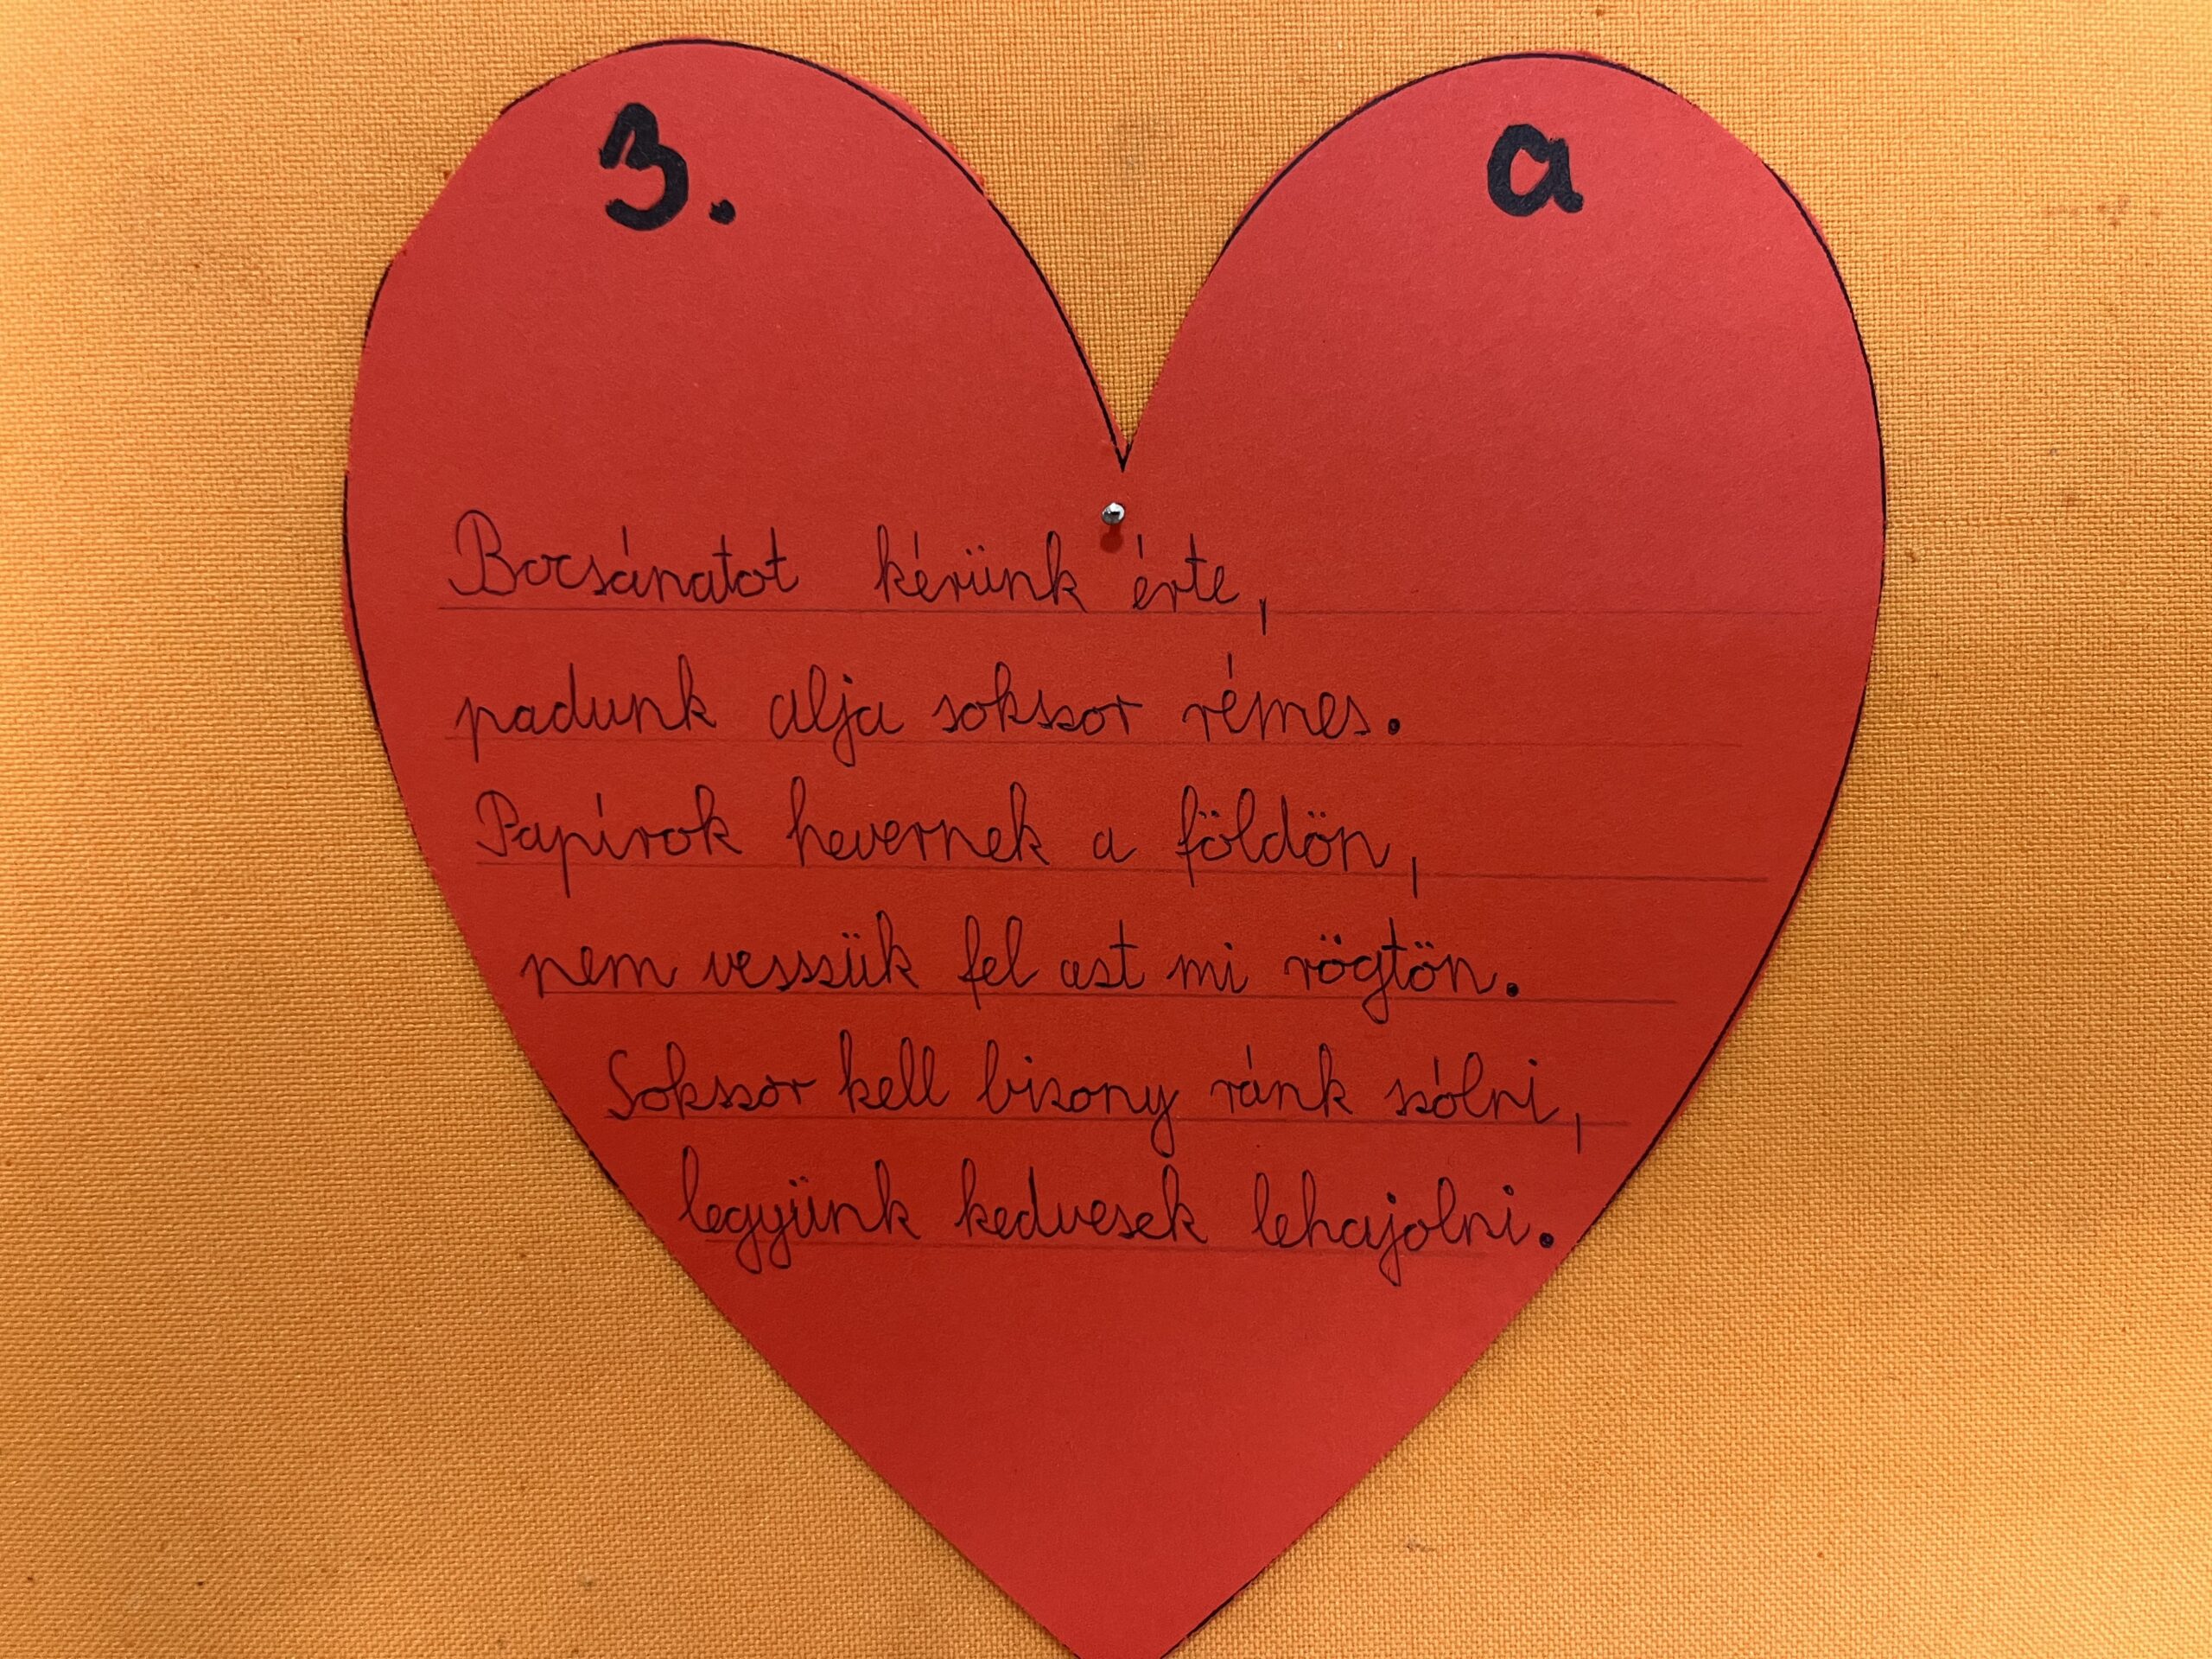 3. a
Bocsánatot kérünk érte,
padunk alja sokszor rémes.
Papírok hevernek a földön,
nem vesszük fel azt mi rögtön.
Sokszor kell bizony ránk szólni,
legyünk kedvesek lehajolni.